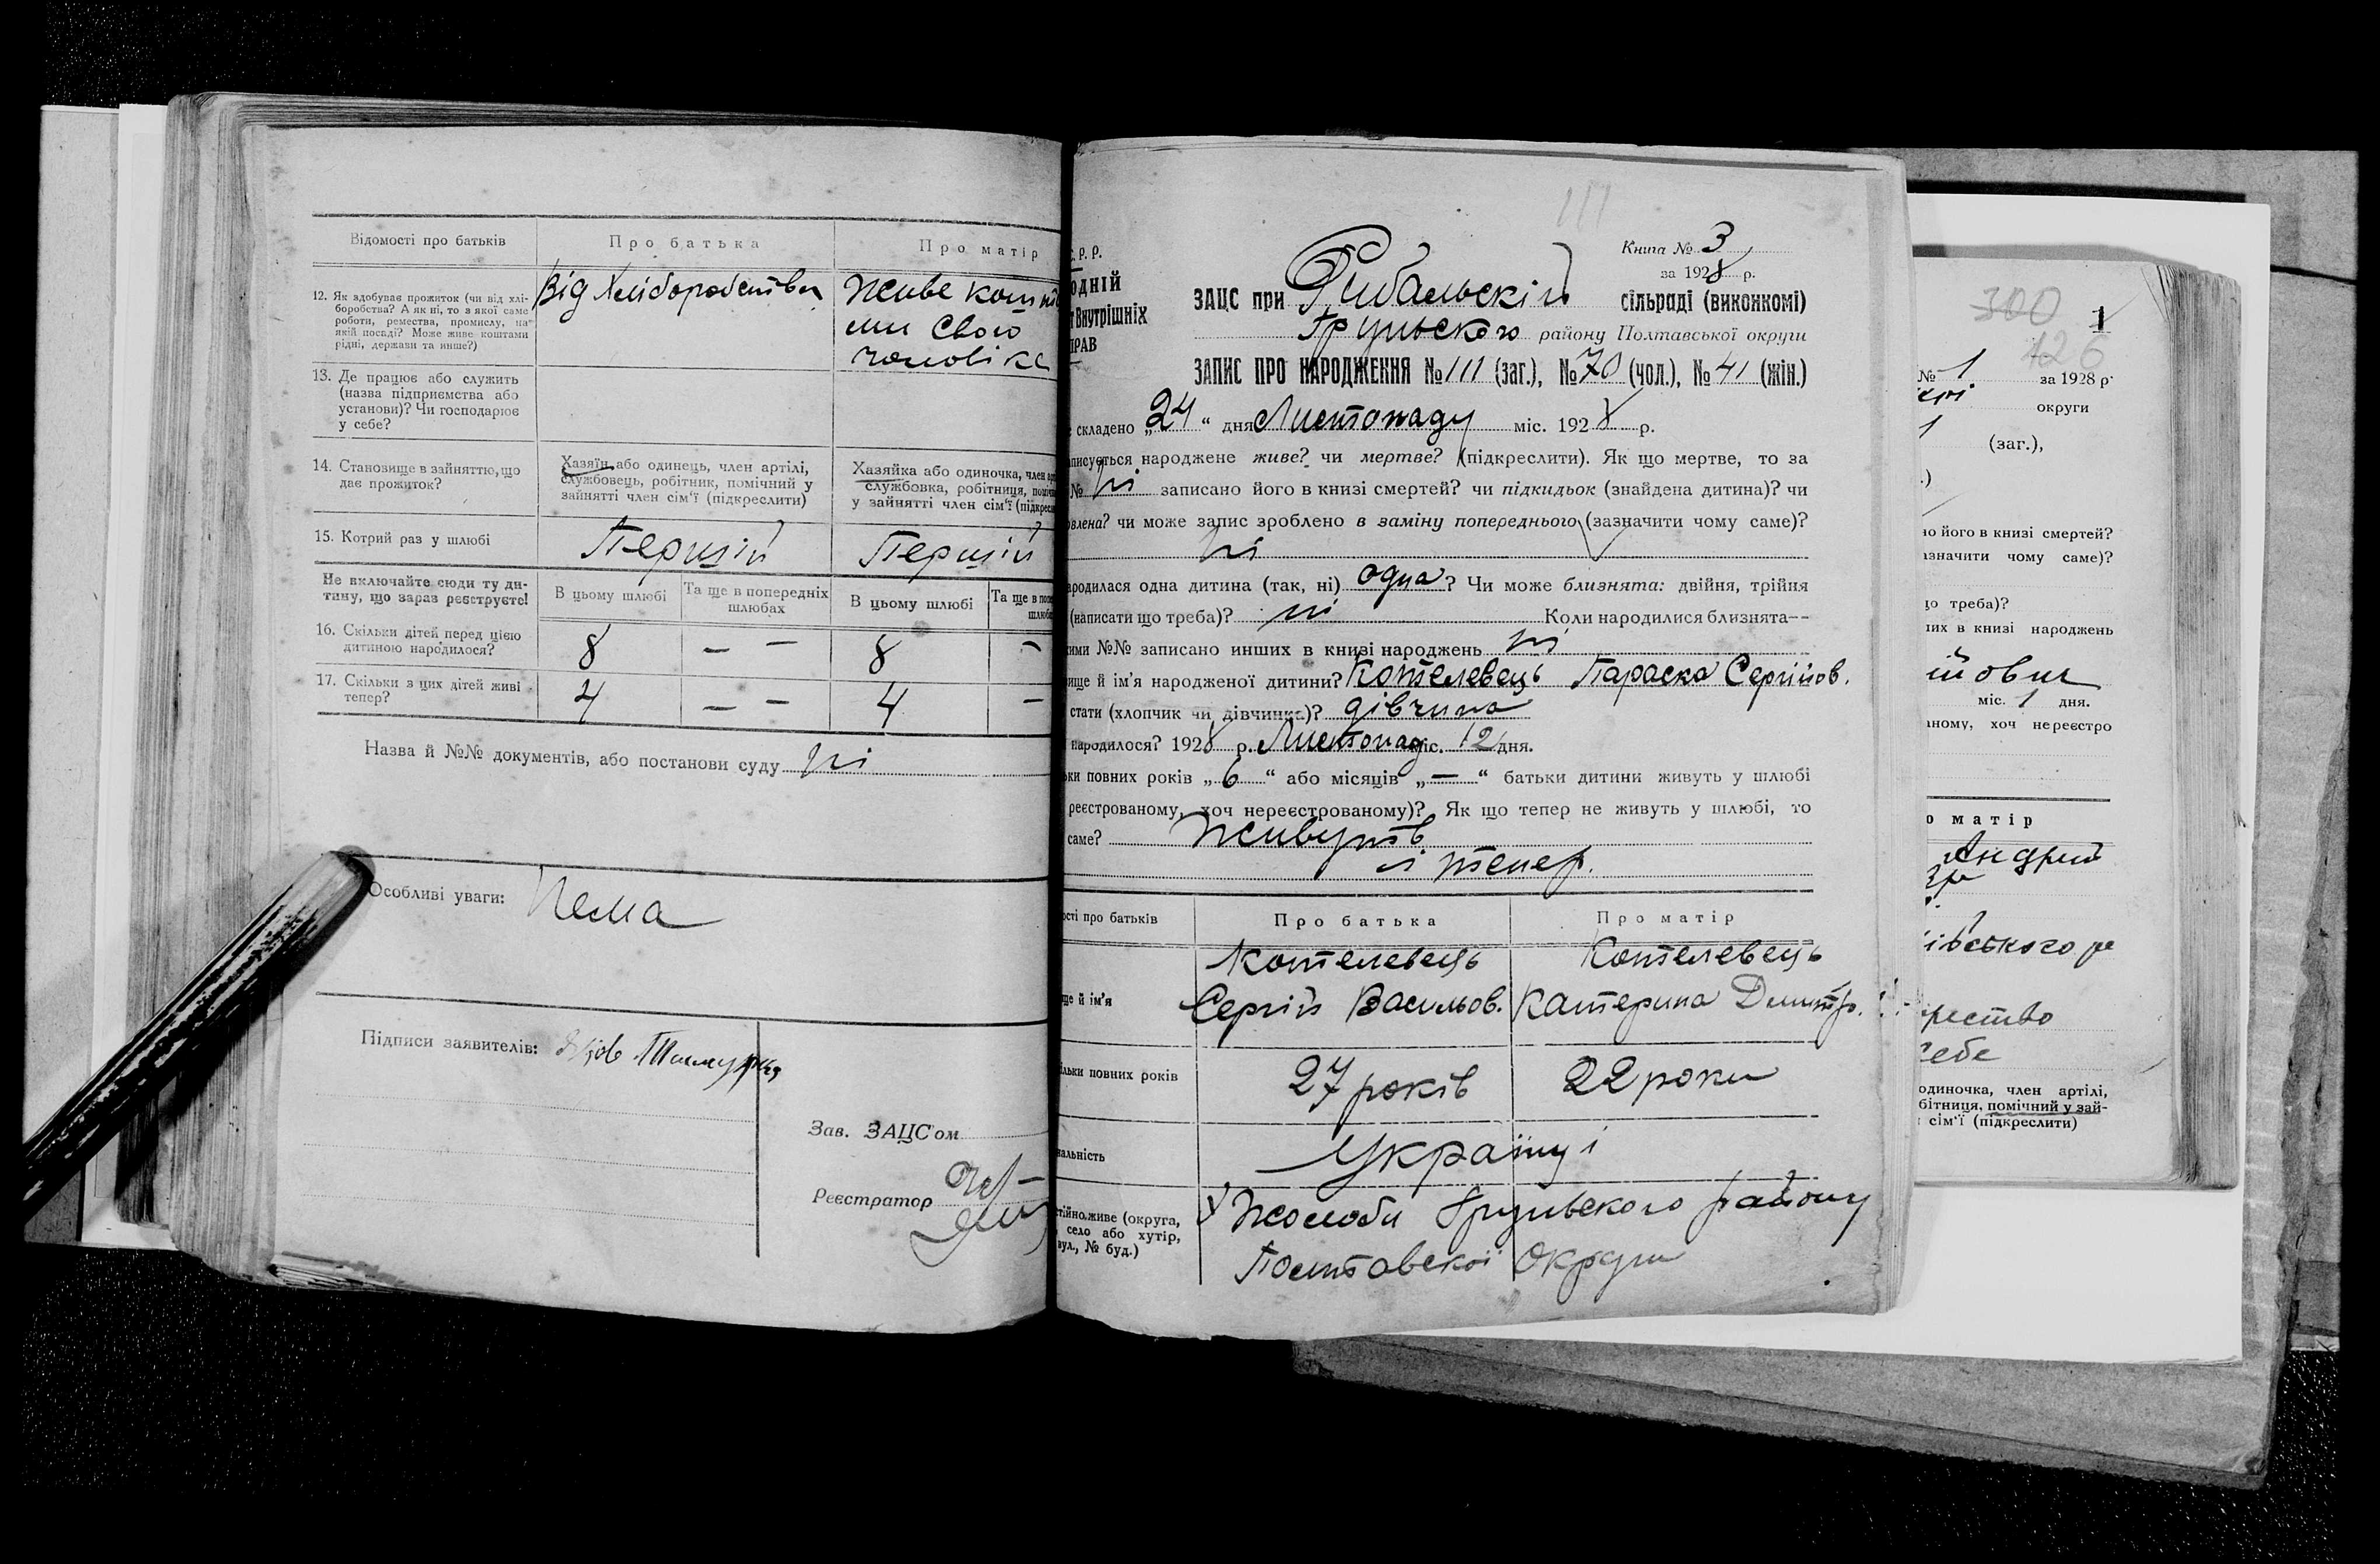 Відомості про батьків
Про батька
Про матір
12. Як здобуває прожиток (чи від хлі-
боробства? А як ні, то з якої саме
роботи, ремества, промислу, на
якій посаді? Може живе коштами
рідні, держави та инше?)
Від Хліборобства
Живе кошта
ми свого
чоловіка
13. Де працює або служить
(назва підприємства або
установи)? Чи господарює
у себе?
14. Становище в зайняттю, що
дає прожиток?
Хазяїн або одинець, член артілі,
службовець, робітник, помічний у
зайнятті член сім'ї (підкреслити)
Хазяйка або одиночка, член
службовка, робітниця,
у зайнятті член сім'ї
15. Котрий раз у шлюбі
Перший
Перший
Не включайте сюди ту ди-
тину, що зараз реєструєте!
В цьому шлюбі
Та ще в попередніх
шлюбах
В цьому шлюбі
Та ще в
16. Скільки дітей перед цією
дитиною народилося?
8
— —
8
—
17. Скільки з цих дітей живі
тепер?
4
— —
4
—
Назва й №№ документів, або постанови суду ні
Особливі уваги: Нема
Підписи заявителів:
Зав. ЗАЦС'ом
Реєстратор
111
Р. Р.
Книга № 3
за 1928 р.
ОДНІЙ
Внутрішніх
ПРАВ
ЗАЦС при Рибальскій сільраді (виконкомі)
Грунського району Полтавської округи
ЗАПИС ПРО НАРОДЖЕННЯ № 111 (заг.), № 70 (чол.), № 41 (жін.)
складено „24“ дня Листопаду міс. 1928 р.
записується народжене живе? чи мертве? (підкреслити). Як що мертве, то за
№ ні записано його в книзі смертей? чи підкидьок (знайдена дитина)? чи
влена? чи може запис зроблено в заміну попереднього (зазначити чому саме)?
ні
народилася одна дитина (так, ні) одна? Чи може близнята: двійня, трійня
(написати що треба)? ні Коли народилися близнята—
ими №№ записано инших в книзі народжень ні
ище й ім'я народженої дитини? Котелевець Параска Серийов.
стати (хлопчик чи дівчинка)? дівчина
народилося? 1928 р. Листопад міс. 12 дня.
ки повних років „6“ або місяців „—“ батьки дитини живуть у шлюбі
реєстрованому, хоч нереєстрованому)? Як що тепер не живуть у шлюбі, то
саме? Живуть
і тепер.
ості про батьків
Про батька
Про матір
ще й ім'я
Котелевець
Сергій Васильов.
Котелевець
Катерина Дмитр.
ільки повних років
27 років
22 роки
нальність
Українці
стійно живе (округа,
село або хутір,
вул., № буд.)
Жолоби Грунського району
Полтавскої Округи
300
1
126
№ 1 за 1928 р.
округи
1 (заг.),
но його в книзі смертей?
азначити чому саме)?
що треба)?
их в книзі народжень
йович
міс. 1 дня.
аному, хоч нереєстро
о матір
Андрий
івського
себе
одиночка, член артілі,
бітниця, помічний у зай-
сім'ї (підкреслити)